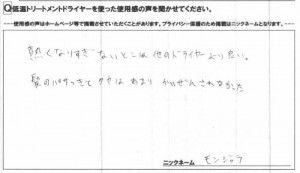 Q低温トリートメントドライヤーを使った使用感の声を聞かせてください。
使用感の声はホームページ等で掲載させていただくことがあります。プライバシー保護のため掲載はニックネームとなります。
熱くなりすぎないところは他のドライヤーより良い。
髪のパサつきとクセはあまりかいぜんされなかった
ニックネーム モンジャラ